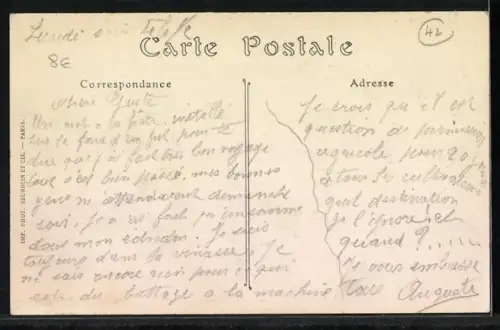 Lundi soir
8€
42
Carte Postale
Correspondance
Adresse
IMP. PHOT. NEURDEIN ET CIE. — PARIS.
Chère
Un mot à la hâte installé
sur le fond d'un fut pour te
dire que j'ai fait très bon voyage
tout s'est bien passé. mes bonnes
gens m'attendaient dimanche
soir, je n'ai fait qu'un somme
dans mon édredon. Je suis
toujours dans la vinasse. Je
ne sais encore rien pour ce qui
est du battage a la machine
Je crois qu'il est
question de permission
agricole pour 20
a tous les cultivateurs
quel destination
je l'ignore et
quand ?......
Je vous embrasse
tous Auguste